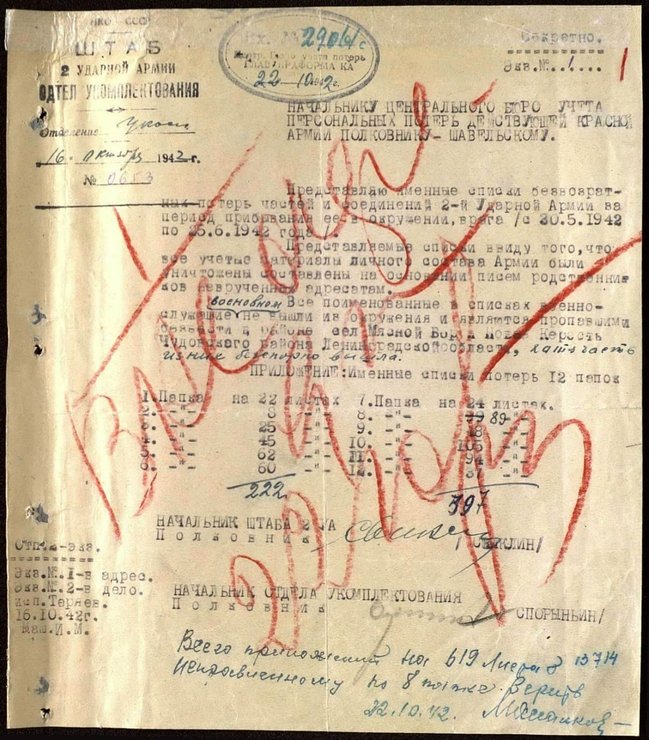 НКО СССР
ШТАБ
2 УДАРНОЙ АРМИИ
ОТДЕЛ УКОМПЛЕКТОВАНИЯ
Отделение
16. Октября 1942 г.
№ 0653
Вх. № 2906/с
22 10 2 г.
Секретно.
Экз.№ 1
1
НАЧАЛЬНИКУ ЦЕНТРАЛЬНОГО БЮРО УЧЕТА
ПЕРСОНАЛЬНЫХ ПОТЕРЬ ДЕЙСТВУЮЩЕЙ КРАСНОЙ
АРМИИ ПОЛКОВНИКУ-ШАВЕЛЬСКОМУ.
Представляю именные списки безвозврат-
ных потерь частей и соединений 2-й Ударной Армии за
период пребывания ее в окружении врага /с 30.5.1942
по 25.6.1942 года.
Представляемые списки ввиду того, что
все учетые материалы личного состава Армии были
уничтожены составлены на основании писем родственни-
ков неврученных адресатам.
восновном
Все поименованные в списках военно-
служащие не вышли из окружения и являются пропавшими
безвести в районе сел Мясной Бор и Кересть
Чудовского района Ленинградской области, часть
из них вышла.
ПРИЛОЖЕНИЕ: Именные списки потерь 12 папок
1. Папка на 22 листах 7. Папка на 24 листах.
2. -"- 8 -"- 8. -"- 89 -"-
3. -"- 25 -"- 9. -"- -"-
4. -"- 45 -"- 10. -"- -"-
5. -"- 62 -"- 11. -"- 94 -"-
6. -"- 60 -"- 12. -"- -"-
222 397
НАЧАЛЬНИК ШТАБА 2 УА
Полковник
НАЧАЛЬНИК ОТДЕЛА УКОМПЛЕКТОВАНИЯ
Полковник СПОРЫНЬИН/
Отп.2-экз.
Экз.№ 1-в адрес.
Экз.№ 2-в дело.
исп.Теряев.
16.10.42г.
маш.И.М.
Всего приложений на 619 листах 13714
Неправленному по 8 папке. Верить
22.10.42.